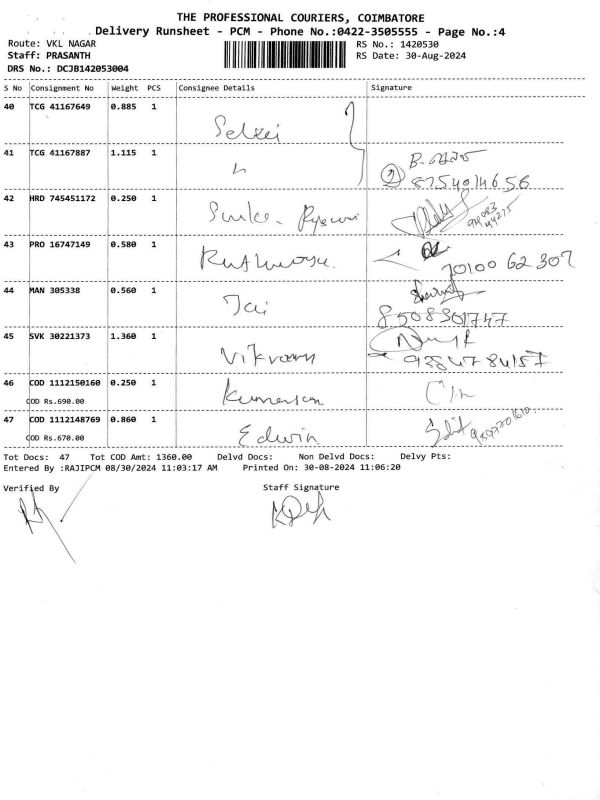 THE PROFESSIONAL COURIERS, COIMBATORE
Delivery Runsheet - PCM - Phone No.:0422-3505555 - Page No.:4
Route: VKL NAGAR RS No.: 1420530
Staff: PRASANTH RS Date: 30-Aug-2024
DRS No.: DCJB142053004
S No Consignment No Weight PCS Consignee Details Signature
40 TCG 41167649 0.885 1
Selvei
41 TCG 41167887 1.115 1
② 8754014656
42 HRD 745451172 0.250 1
43 PRO 16747149 0.580 1
70100 62 307
44 MAN 305338 0.560 1
Jai
8508301747
45 SVK 30221373 1.360 1
Vikram 9384784157
46 COD 1112150160 0.250 1
COD Rs.690.00
47 COD 1112148769 0.860 1
COD Rs.670.00 Edwin
Tot Docs: 47 Tot COD Amt: 1360.00 Delvd Docs: Non Delvd Docs: Delvy Pts:
Entered By :RAJIPCM 08/30/2024 11:03:17 AM Printed On: 30-08-2024 11:06:20
Verified By Staff Signature